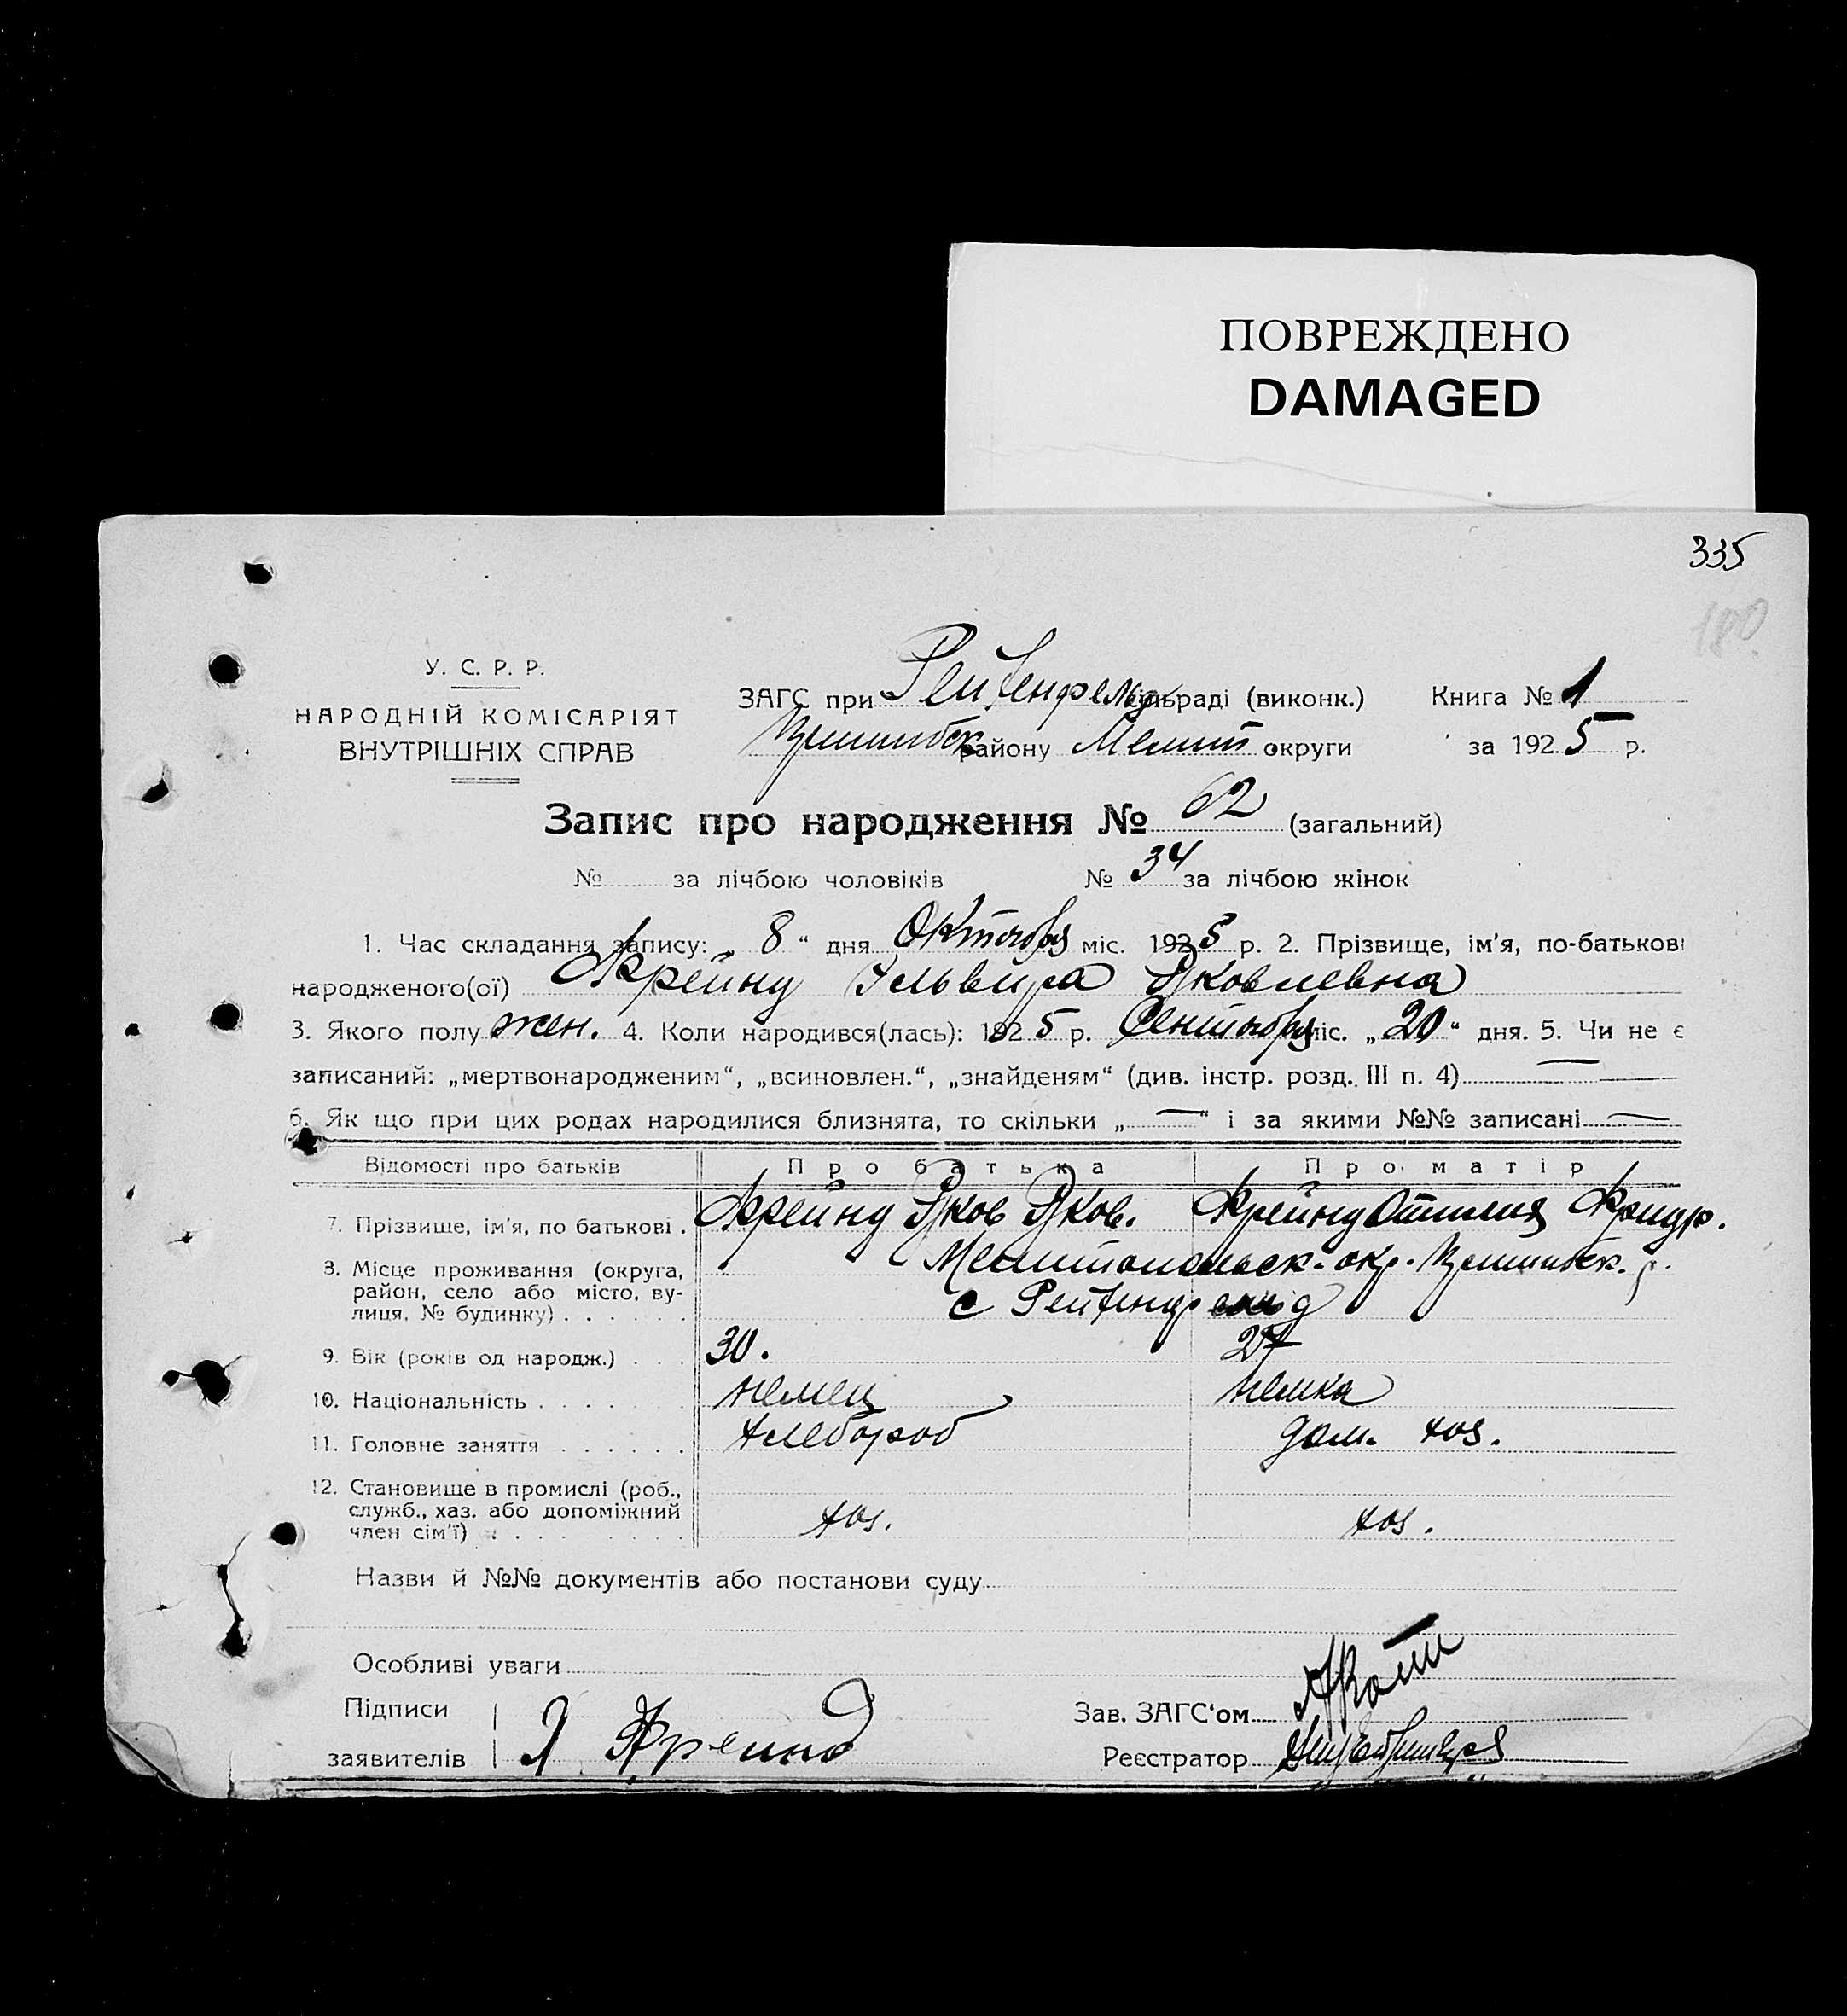 ПОВРЕЖДЕНО
DAMAGED
335
180
У. С. Р. Р.
НАРОДНІЙ КОМІСАРІЯТ
ВНУТРІШНІХ СПРАВ
ЗАГС при Рейхенфельд сільраді (виконк.) Книга № 1
району Мелит округи за 1925 р.
Запис про народження № 62 (загальний)
№ за лічбою чоловіків № 34 за лічбою жінок
1. Час складання запису: „ 8 “ дня Октября міс. 1925 р. 2. Прізвище, ім’я, по-батькові
народженого(ої) Фрейнд Эльвира Яковлевна
3. Якого полу жен. 4. Коли народився(лась): 1925 р. Сентября міс. „ 20 “ дня. 5. Чи не є
записаний: „мертвонародженим“, „всиновлен.“, „знайденям“ (див. інстр. розд. III п. 4) —
6. Як що при цих родах народилися близнята, то скільки „ — “ і за якими №№ записані —
Відомості про батьків Про батька Про матір
7. Прізвище, ім’я, по батькові . Фрейнд Яков Яков. Фрейнд Оттилия Фридр.
8. Місце проживання (округа, Мелитопольск. окр. р.
район, село або місто, ву-
лиця, № будинку) . . . . . . с Рейхенфельд
9. Вік (років од народж.) . . . 30. 27
10. Національність . . . . . . . немец немка
11. Головне заняття . . . . . . хлебороб дом. хоз.
12. Становище в промислі (роб.,
служб., хаз. або допоміжний
член сім’ї) . . . . . . . . хоз. хоз.
Назви й №№ документів або постанови суду
Особливі уваги
Підписи
Зав. ЗАГС‘ом
заявителів Я Фрейнд
Реєстратор